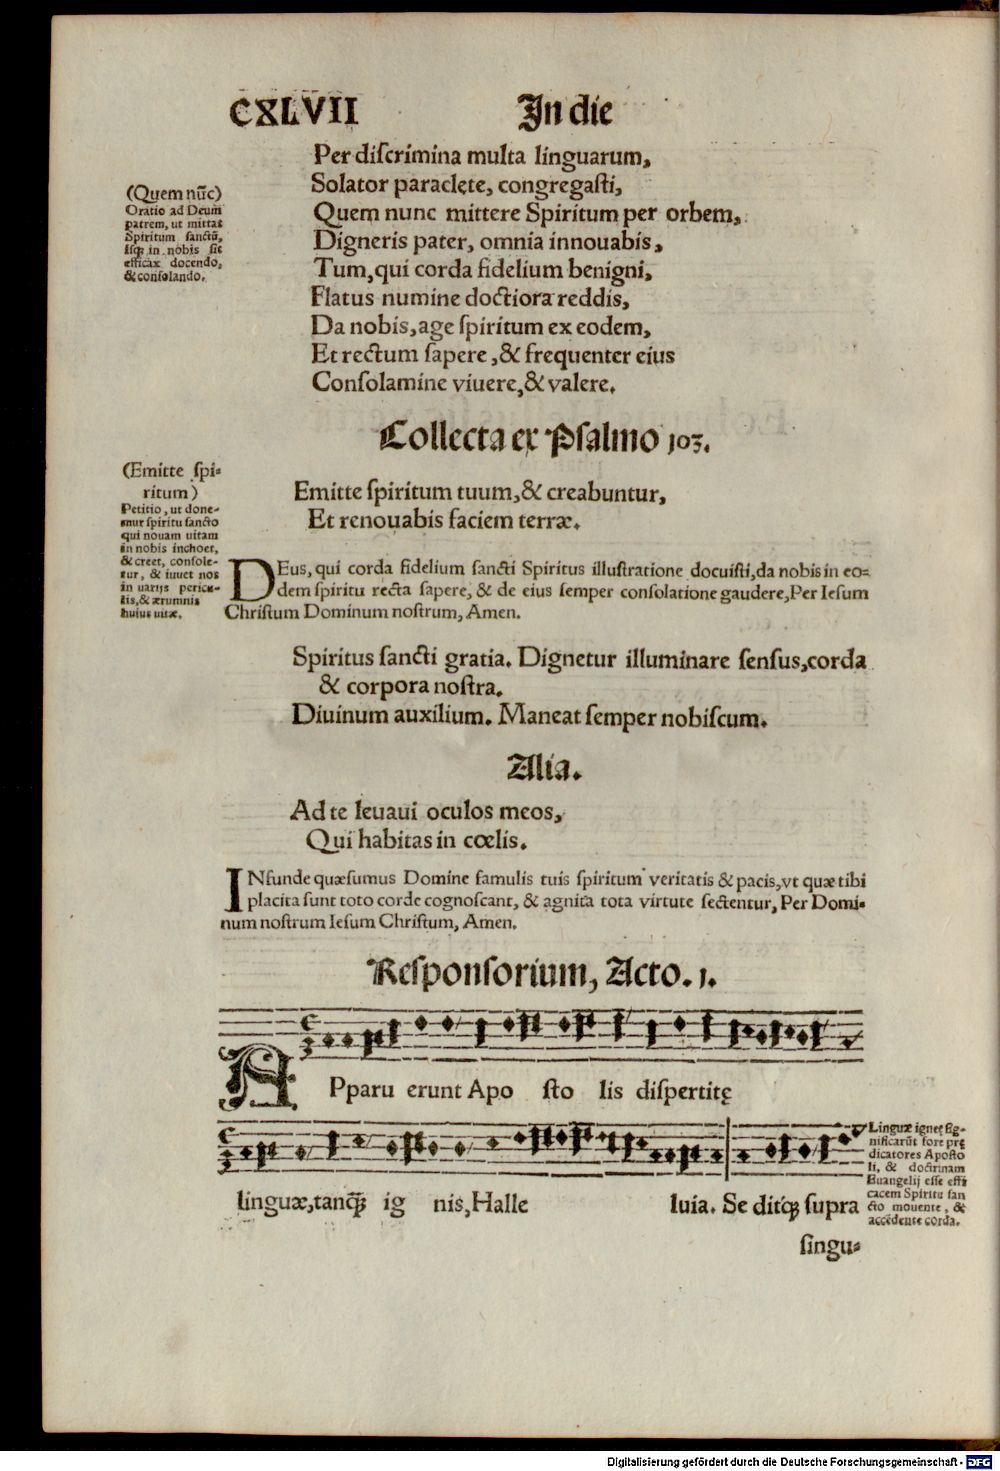 CXLVII
In die
Per diſcrimina multa linguarum,
Solator paraclęte, congregaſti,
Quem nunc mittere Spiritum per orbem,
Digneris pater, omnia innouabis,
Tum, qui corda fidelium benigni,
Flatus numine doctiora reddis,
Da nobis, age ſpiritum ex eodem,
Et rectum ſapere, & frequenter eius
Conſolamine viuere, & valere.
(Quem nūc)
Oratio ad Deum
patrem, ut mittat
Spiritum ſanctū,
iſq̃ in nobis ſit
efficax docendo,
& conſolando.
Collecta ex Pſalmo 103.
(Emitte ſpi-
ritum)
Petitio, ut done-
mur ſpiritu ſancto
qui nouam uitam
in nobis inchoet,
& creet, conſole-
tur, & iuuet nos
in uarijs pericu-
lis, & ærumnis
huius uitæ.
Emitte ſpiritum tuum, & creabuntur,
Et renouabis faciem terræ.
DEus, qui corda fidelium ſancti Spiritus illuſtratione docuiſti, da nobis in eo-
dem ſpiritu recta ſapere, & de eius ſemper conſolatione gaudere, Per Ieſum
Chriſtum Dominum noſtrum, Amen.
Spiritus ſancti gratia. Dignetur illuminare ſenſus, corda
& corpora noſtra.
Diuinum auxilium. Maneat ſemper nobiſcum.
Alia.
Ad te leuaui oculos meos,
Qui habitas in cœlis.
INfunde quæſumus Domine famulis tuis ſpiritum veritatis & pacis, vt quæ tibi
placita ſunt toto corde cognoſcant, & agnita tota virtute ſectentur, Per Domi-
num noſtrum Ieſum Chriſtum, Amen.
Reſponſorium, Acto. 1.
APparu erunt Apo ſto lis diſpertitę
linguæ, tanq̃ ig nis, Halle luia. Se ditq̃ ſupra
Linguæ igneę ſig-
nificarūt fore prę
dicatores Apoſto
li, & doctrinam
Euangelij eſſe effi
cacem Spiritu ſan
cto mouente, &
accēdente corda.
ſingu-
Digitalisierung gefördert durch die Deutsche Forschungsgemeinschaft - DFG